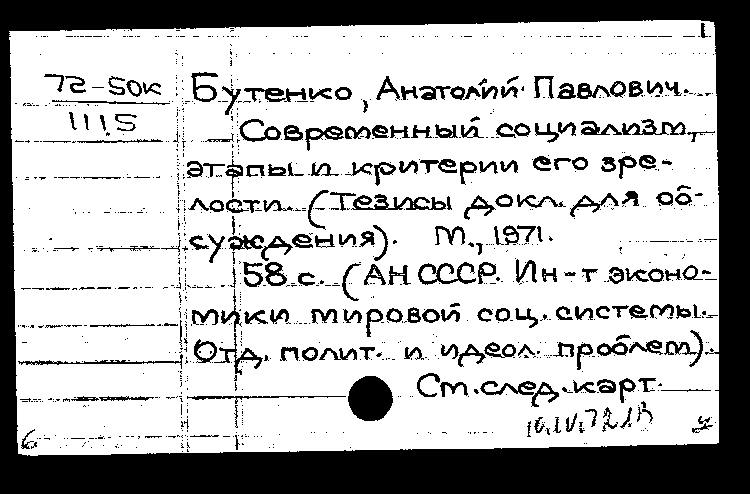 72-50к Бутенко, Анатолий Павлович.
1115 Современный социализм,
этапы и критерии его зре-
лости. (Тезисы докл. для об-
суждения). М., 1971.
58 с. (АН СССР. Ин-т эконо-
мики мировой соц. системы.
Отд. полит. и идеол. проблем).
См. след. карт.
10.IV.72
6